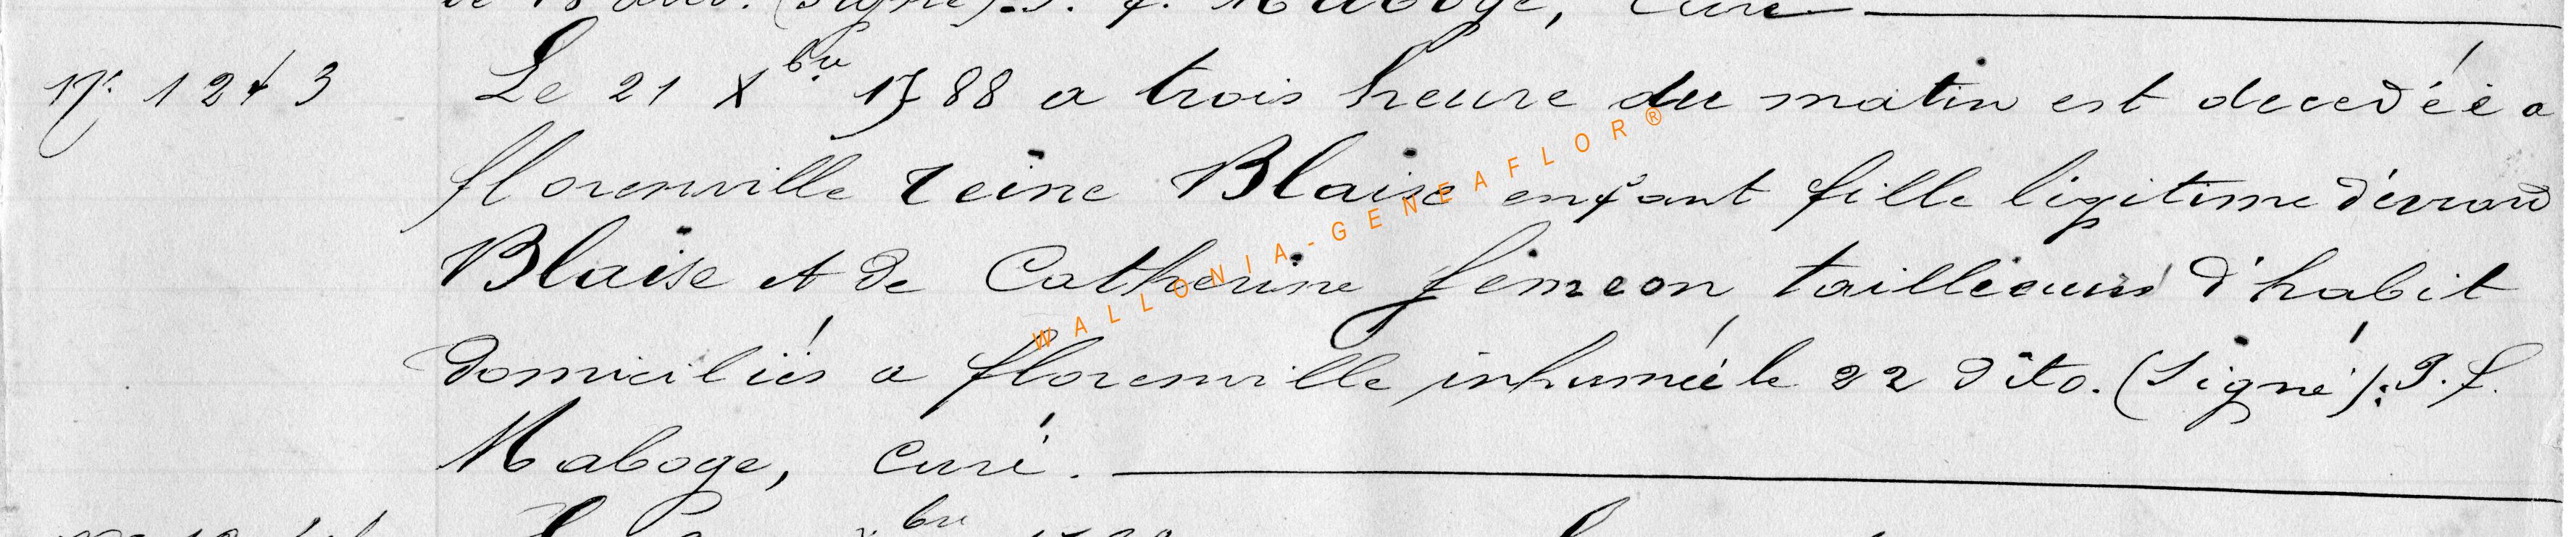 Nº 1243 Le 21 Xbre 1788 a trois heure du matin est decedéé a
florenville reine Blaise enfant fille ligitime dévrard
Blaise et de Catherine femeon tailleurs d'habit
domiciliés a florenville inhumée le 22 dito. (Signé): J. f.
Maboge, Curé.
WALLONIA-GENEAFLOR®